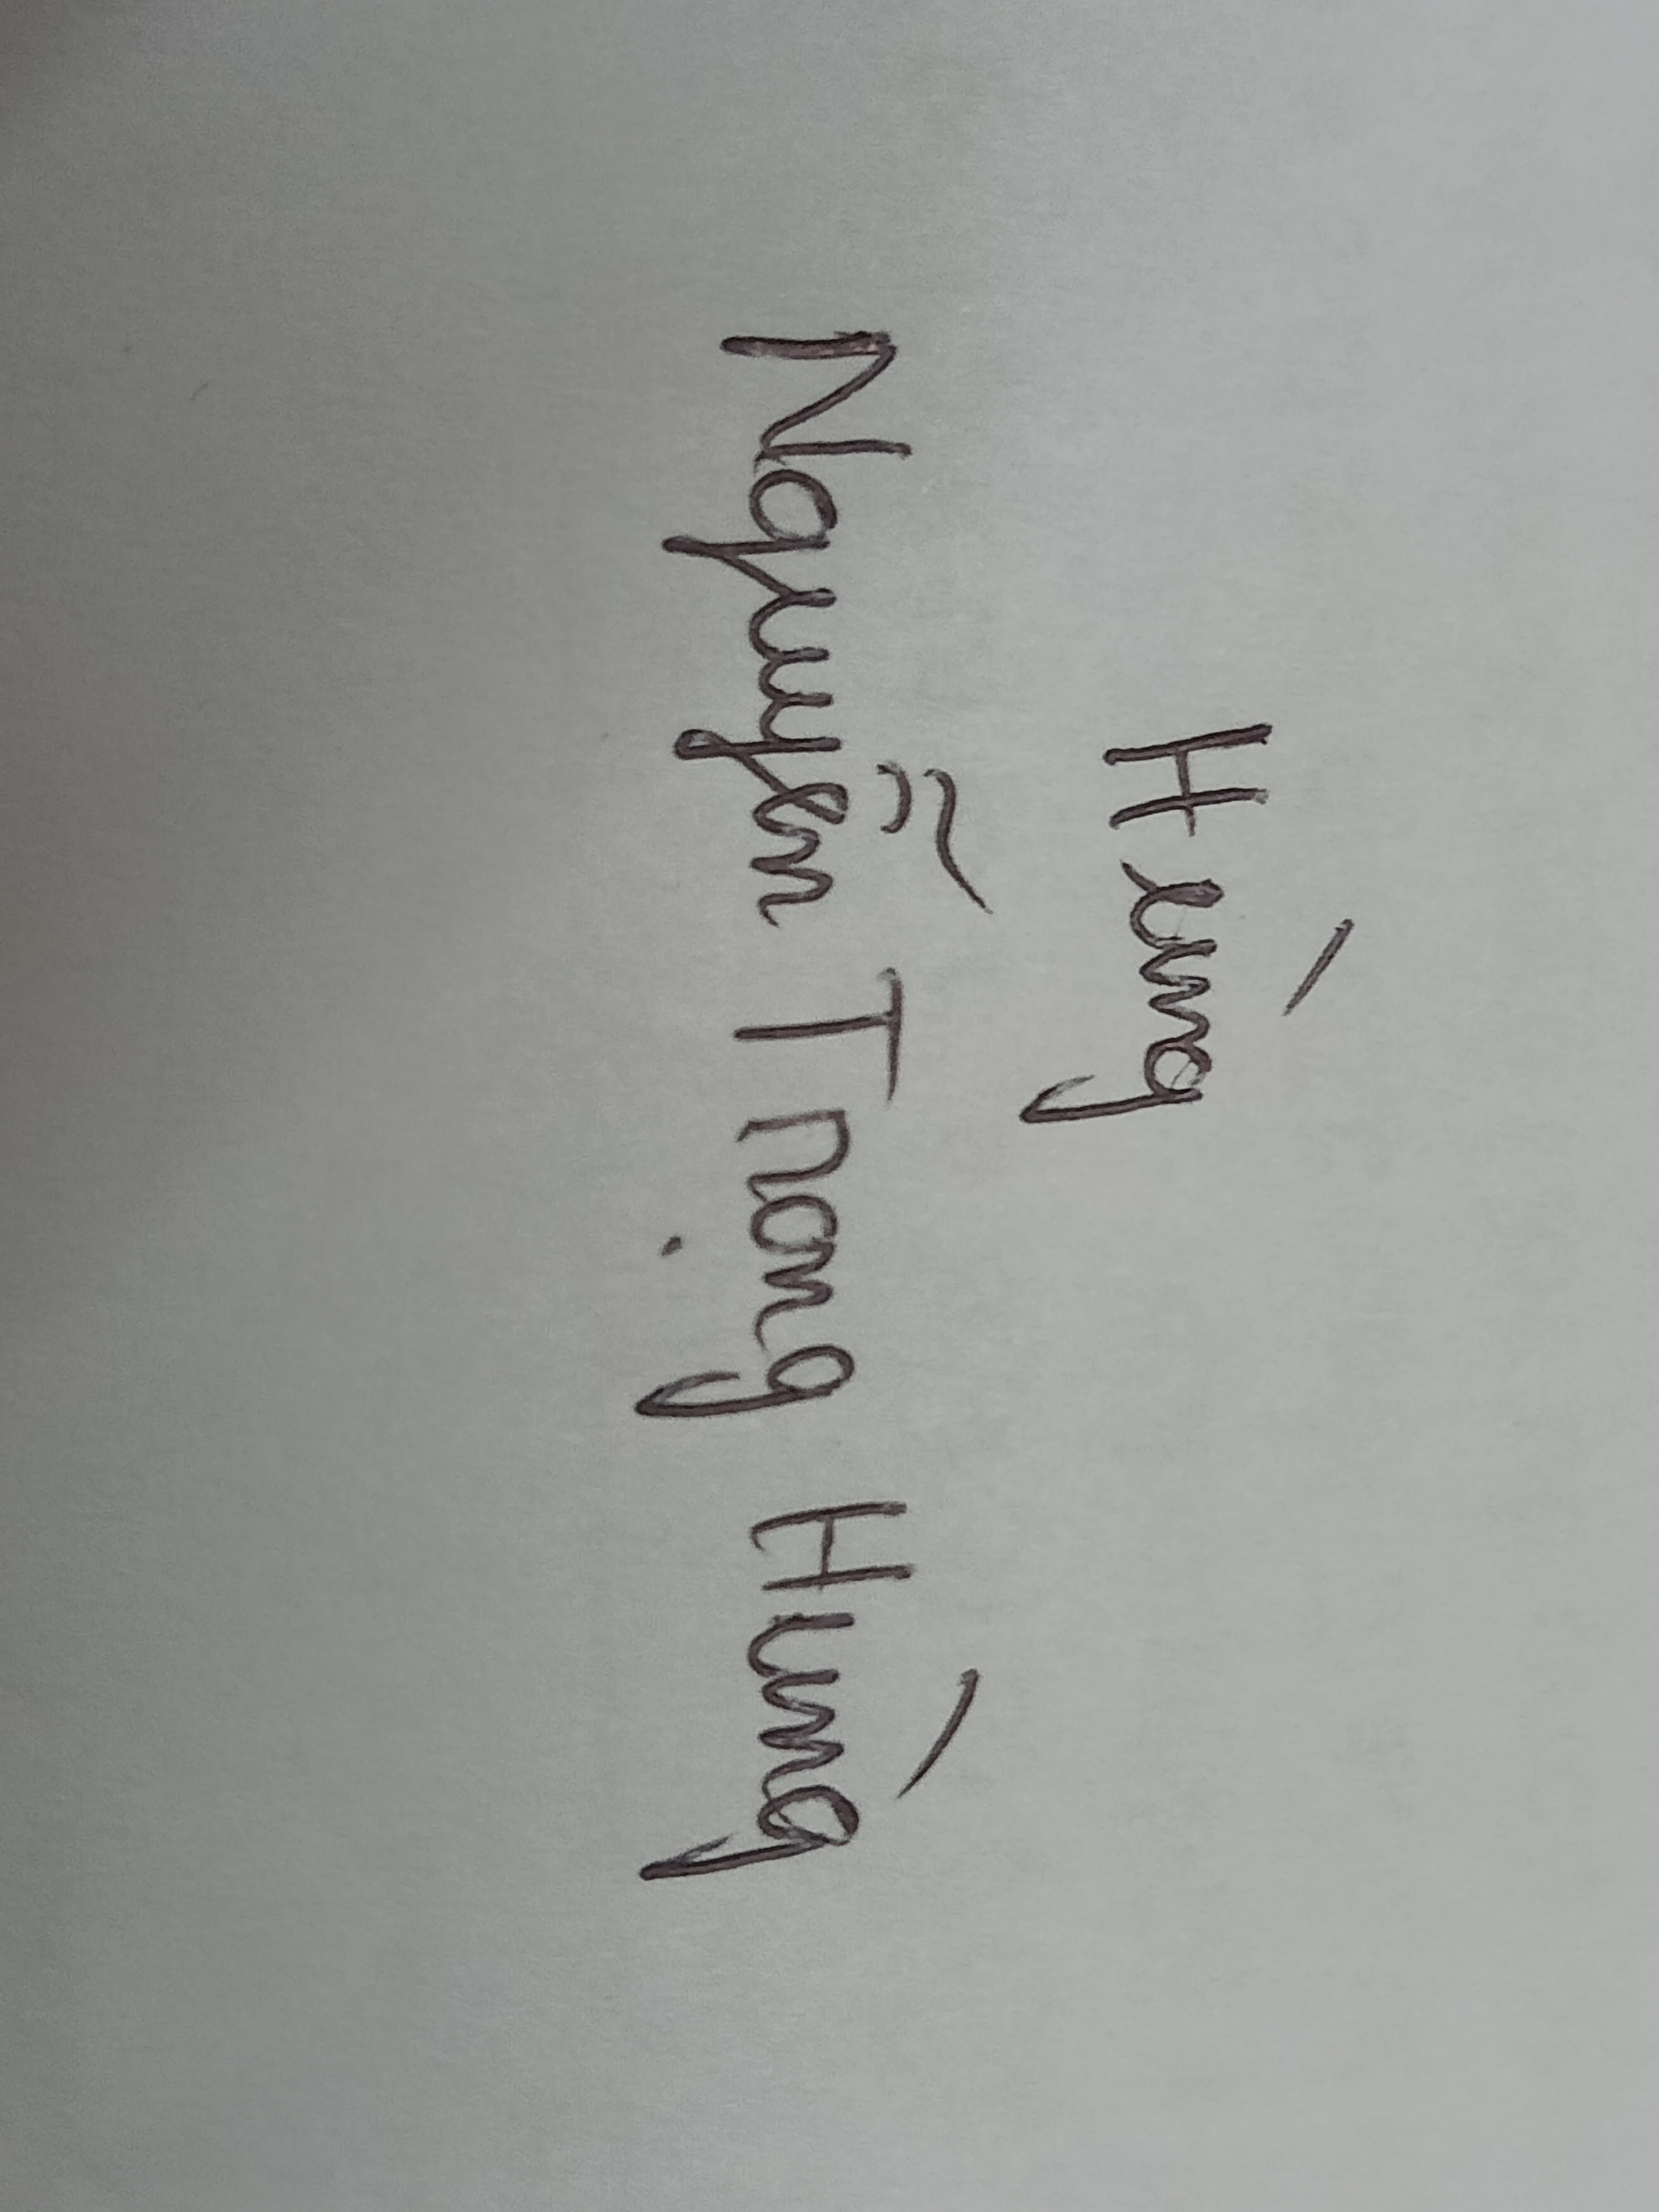 Hùng
Nguyễn Trọng Hùng